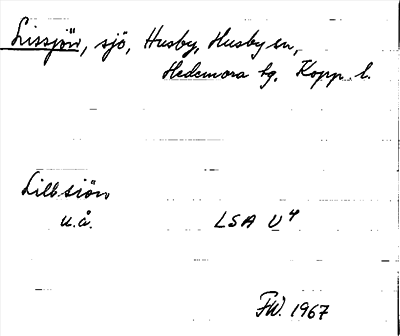 Lissjön, sjö, Husby, Husby sn,
Hedemora tg. Kopp. l.
Lillsiön
u.å. LSA U⁴
FW. 1967